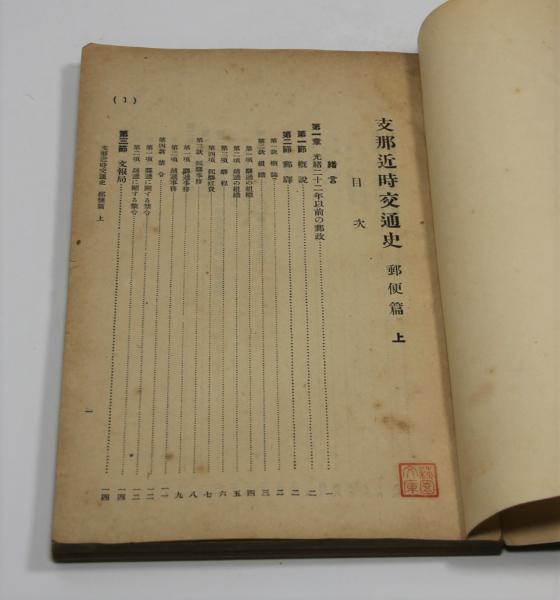 支那近時交通史 郵便篇 上
目次
緒言 一
第一章 光緒二十二年以前の郵政 二
第一節 概説 二
第二節 郵驛 二
第一款 概論 二
第二款 組織 三
第一項 驛遞の組織 四
第二項 鋪遞の組織 五
第三項 驛程 六
第四項 驛站經費 七
第三款 驛站事務 八
第一項 驛遞事務 九
第二項 鋪遞事務 一一
第四款 禁令 一二
第一項 驛遞に關する禁令 一二
第二項 鋪遞に關する禁令 一四
第三節 文報局 一四
支那近時交通史 郵便篇 上
一
(1)